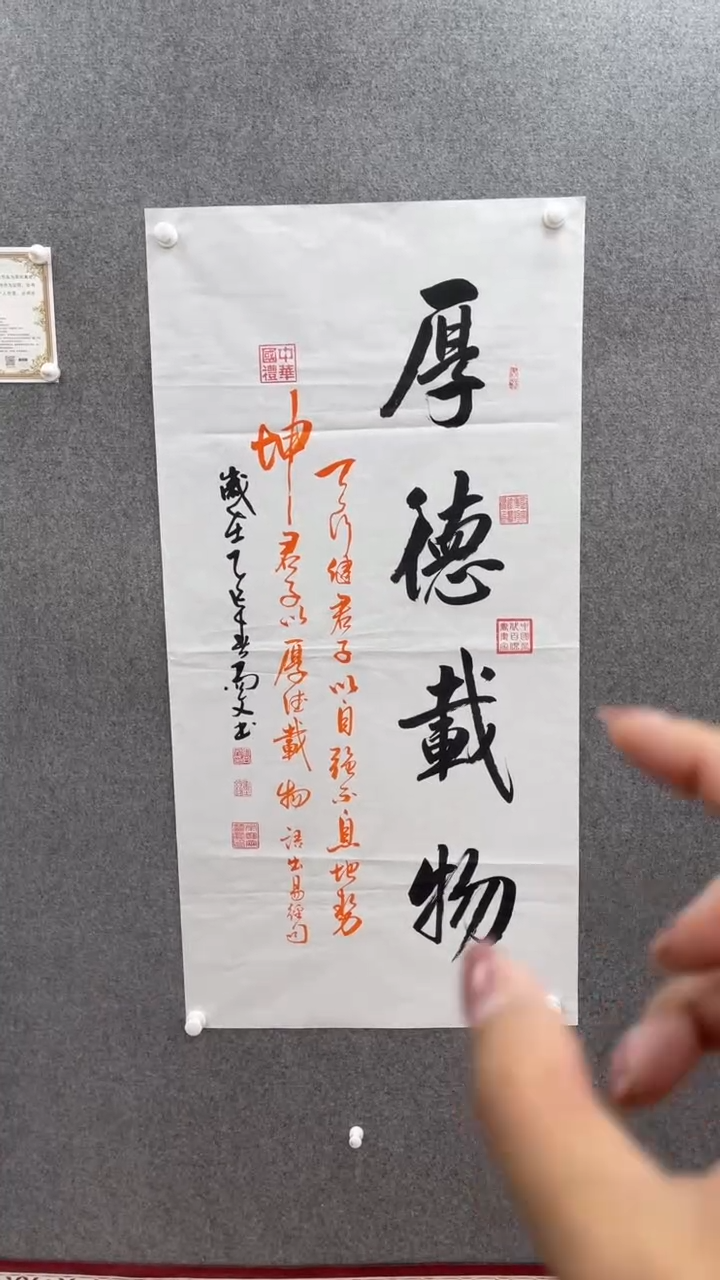 厚德載物
天行健君子以自強不息地勢
坤君子以厚德載物語出易經句
歲在乙巳年春
文書
中華國禮